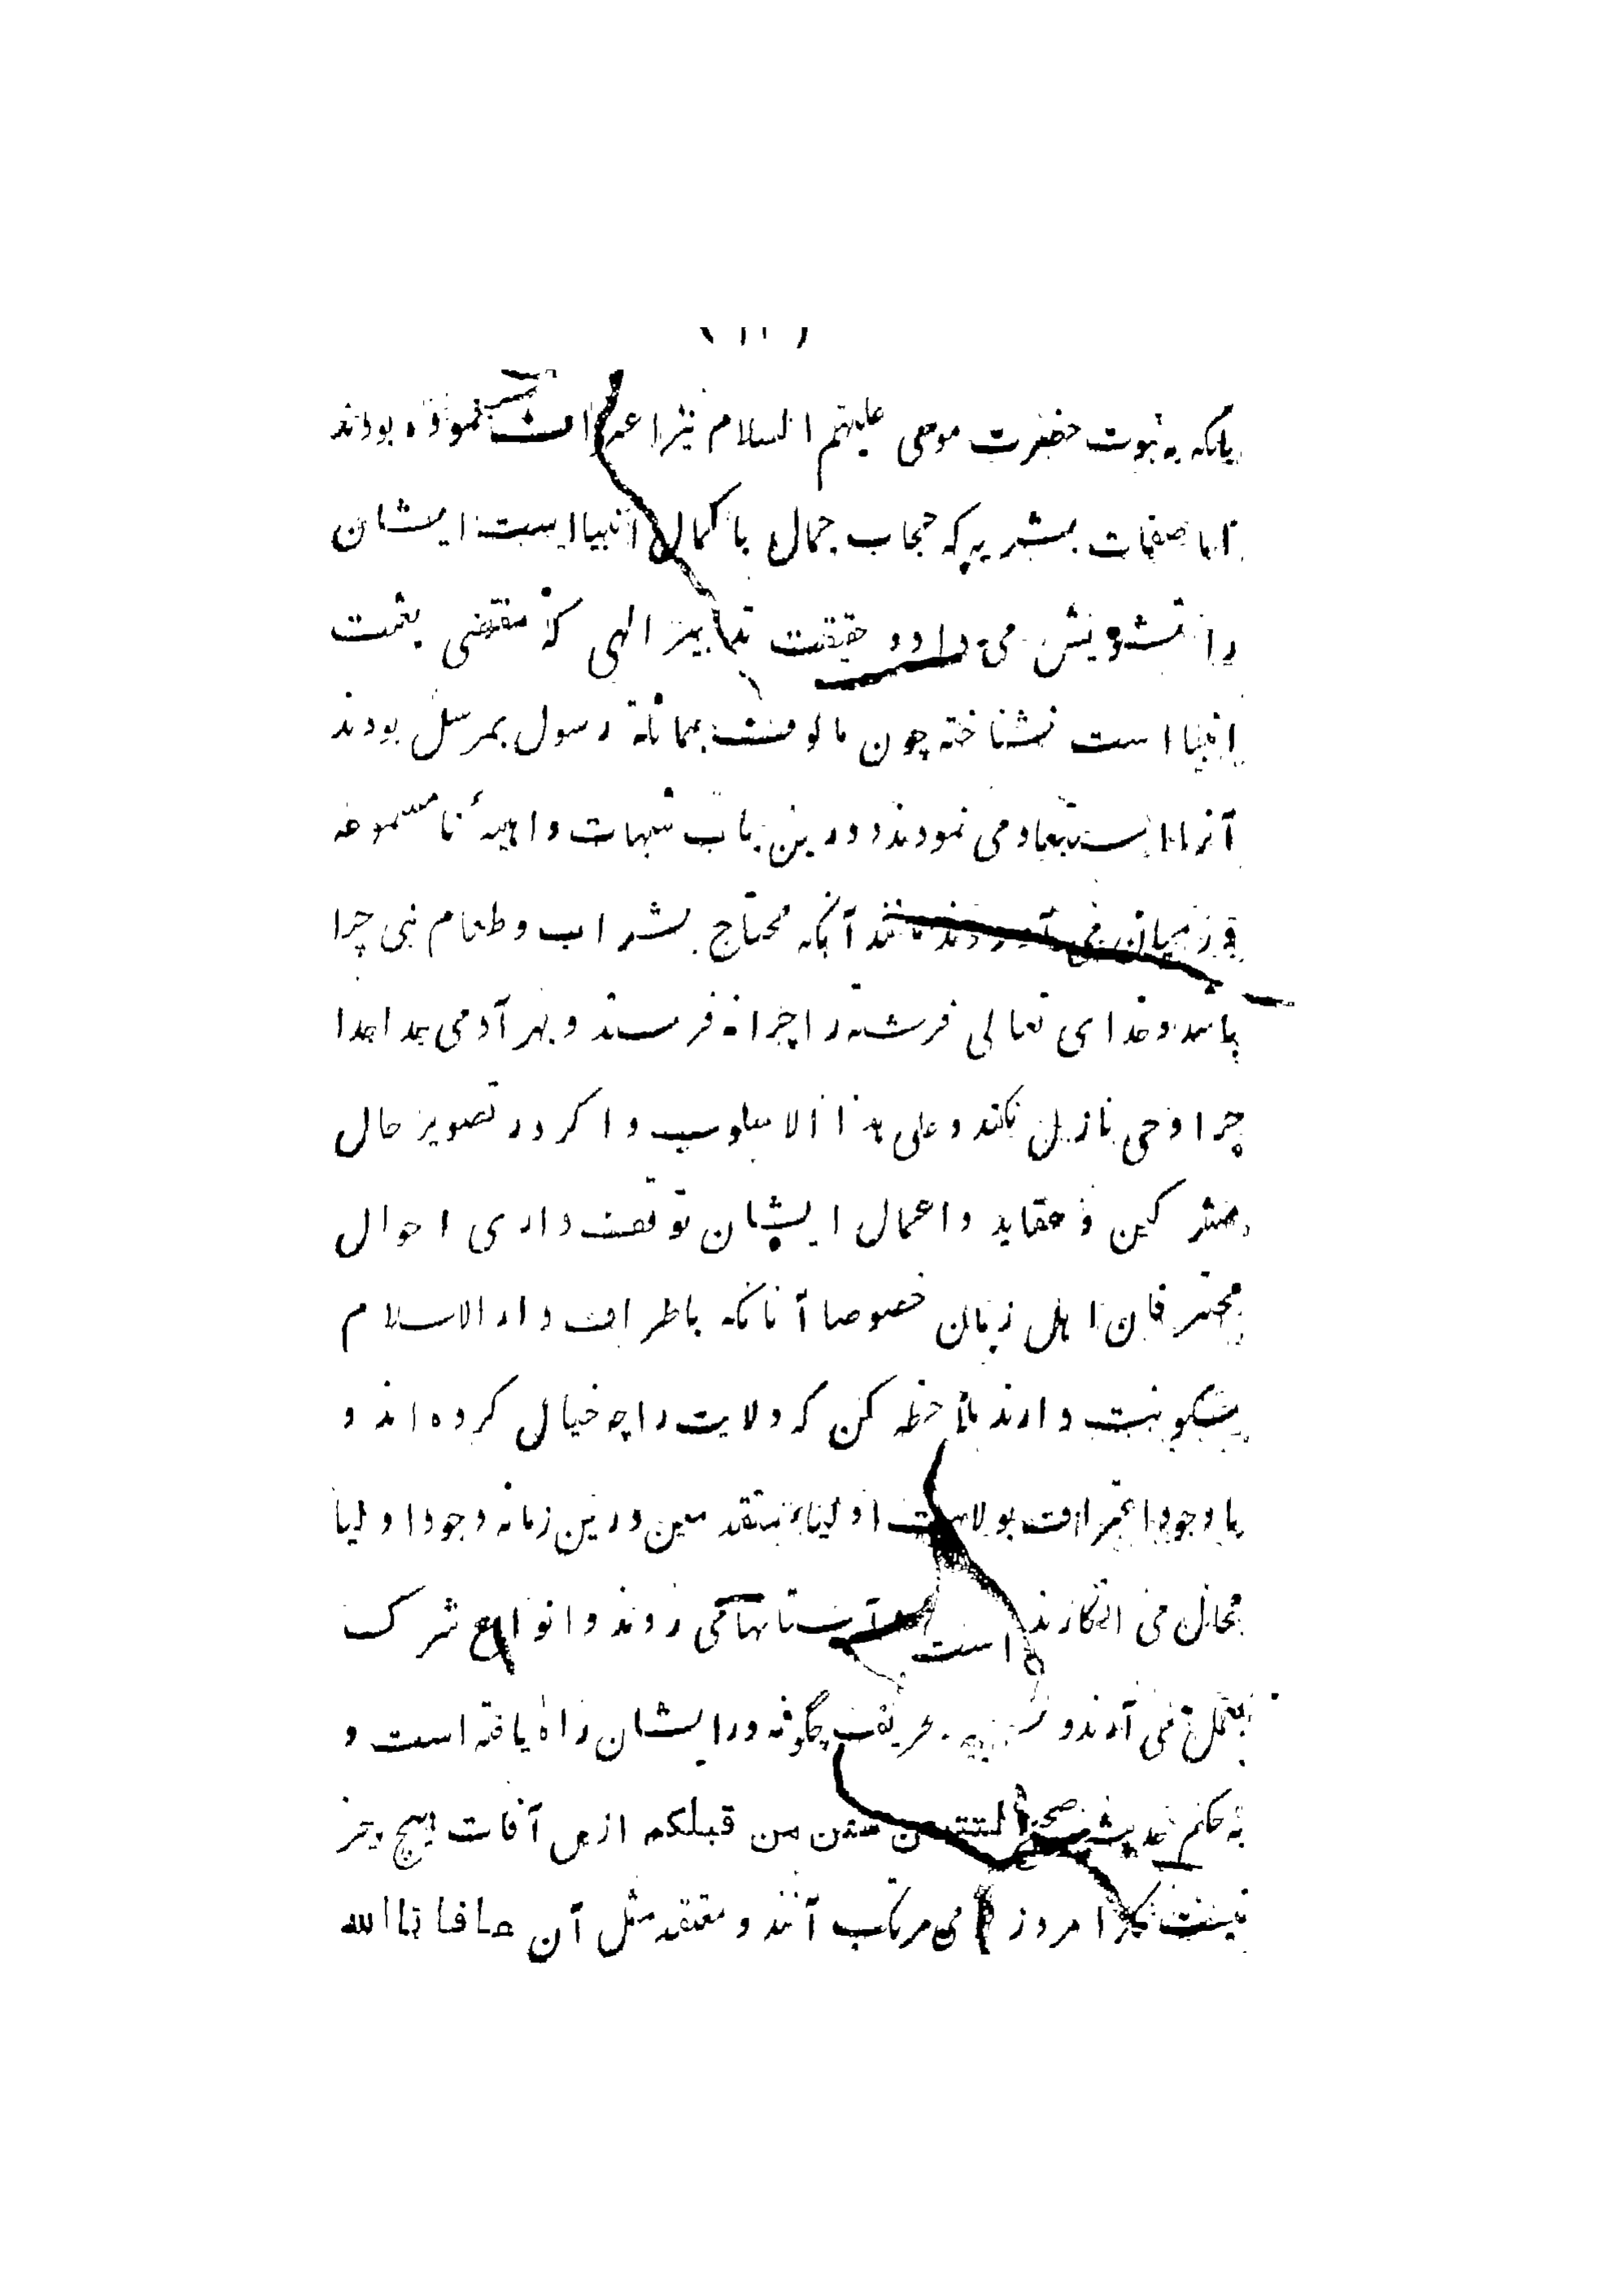 بلکه به نبوت حضرت موسی علیهم السلام نیز اعتراف نموده بودند
اما صفات بشریه که حجاب جمال با کمال انبیا است ایشان
را تشویش می داد و حقیقت تدابیر الهی که مقتضی بعثت
انبیا است نشناخته چون مالوف بمماثلة رسول بمرسل بودند
آنرا استبعاد می نمودند و درین باب شبهات واهیهٔ نا مسموعه
در میان می آوردند مانند آنکه محتاج بشراب و طعام نبی چرا
باشد و خدای تعالی فرشته را چرا نه فرستد و بهر آدمی جدا جدا
چرا وحی نازل نکند و علی هذا الاسلوب و اگر در تصویر حال
مشرکین و عقاید و اعمال ایشان توقف داری احوال
محترفان اهل زمان خصوصا آنانکه باطراف دار الاسلام
سکونت دارند ملاحظه کن که ولایت را چه خیال کرده اند و
با وجود اعتراف بولایت اولیاء متقدمین درین زمانه وجود اولیا
محال می انگارند است آستانها می روند و انواع شرک
بعمل می آرند و تحریف چگونه در ایشان راه یافته است و
به حکم حدیث صحیح لتتبعن سنن من قبلکم ازین آفات هیچ چیز
نیست مگر امروز می مرتکب آنند و معتقد مثل آن عافانا الله